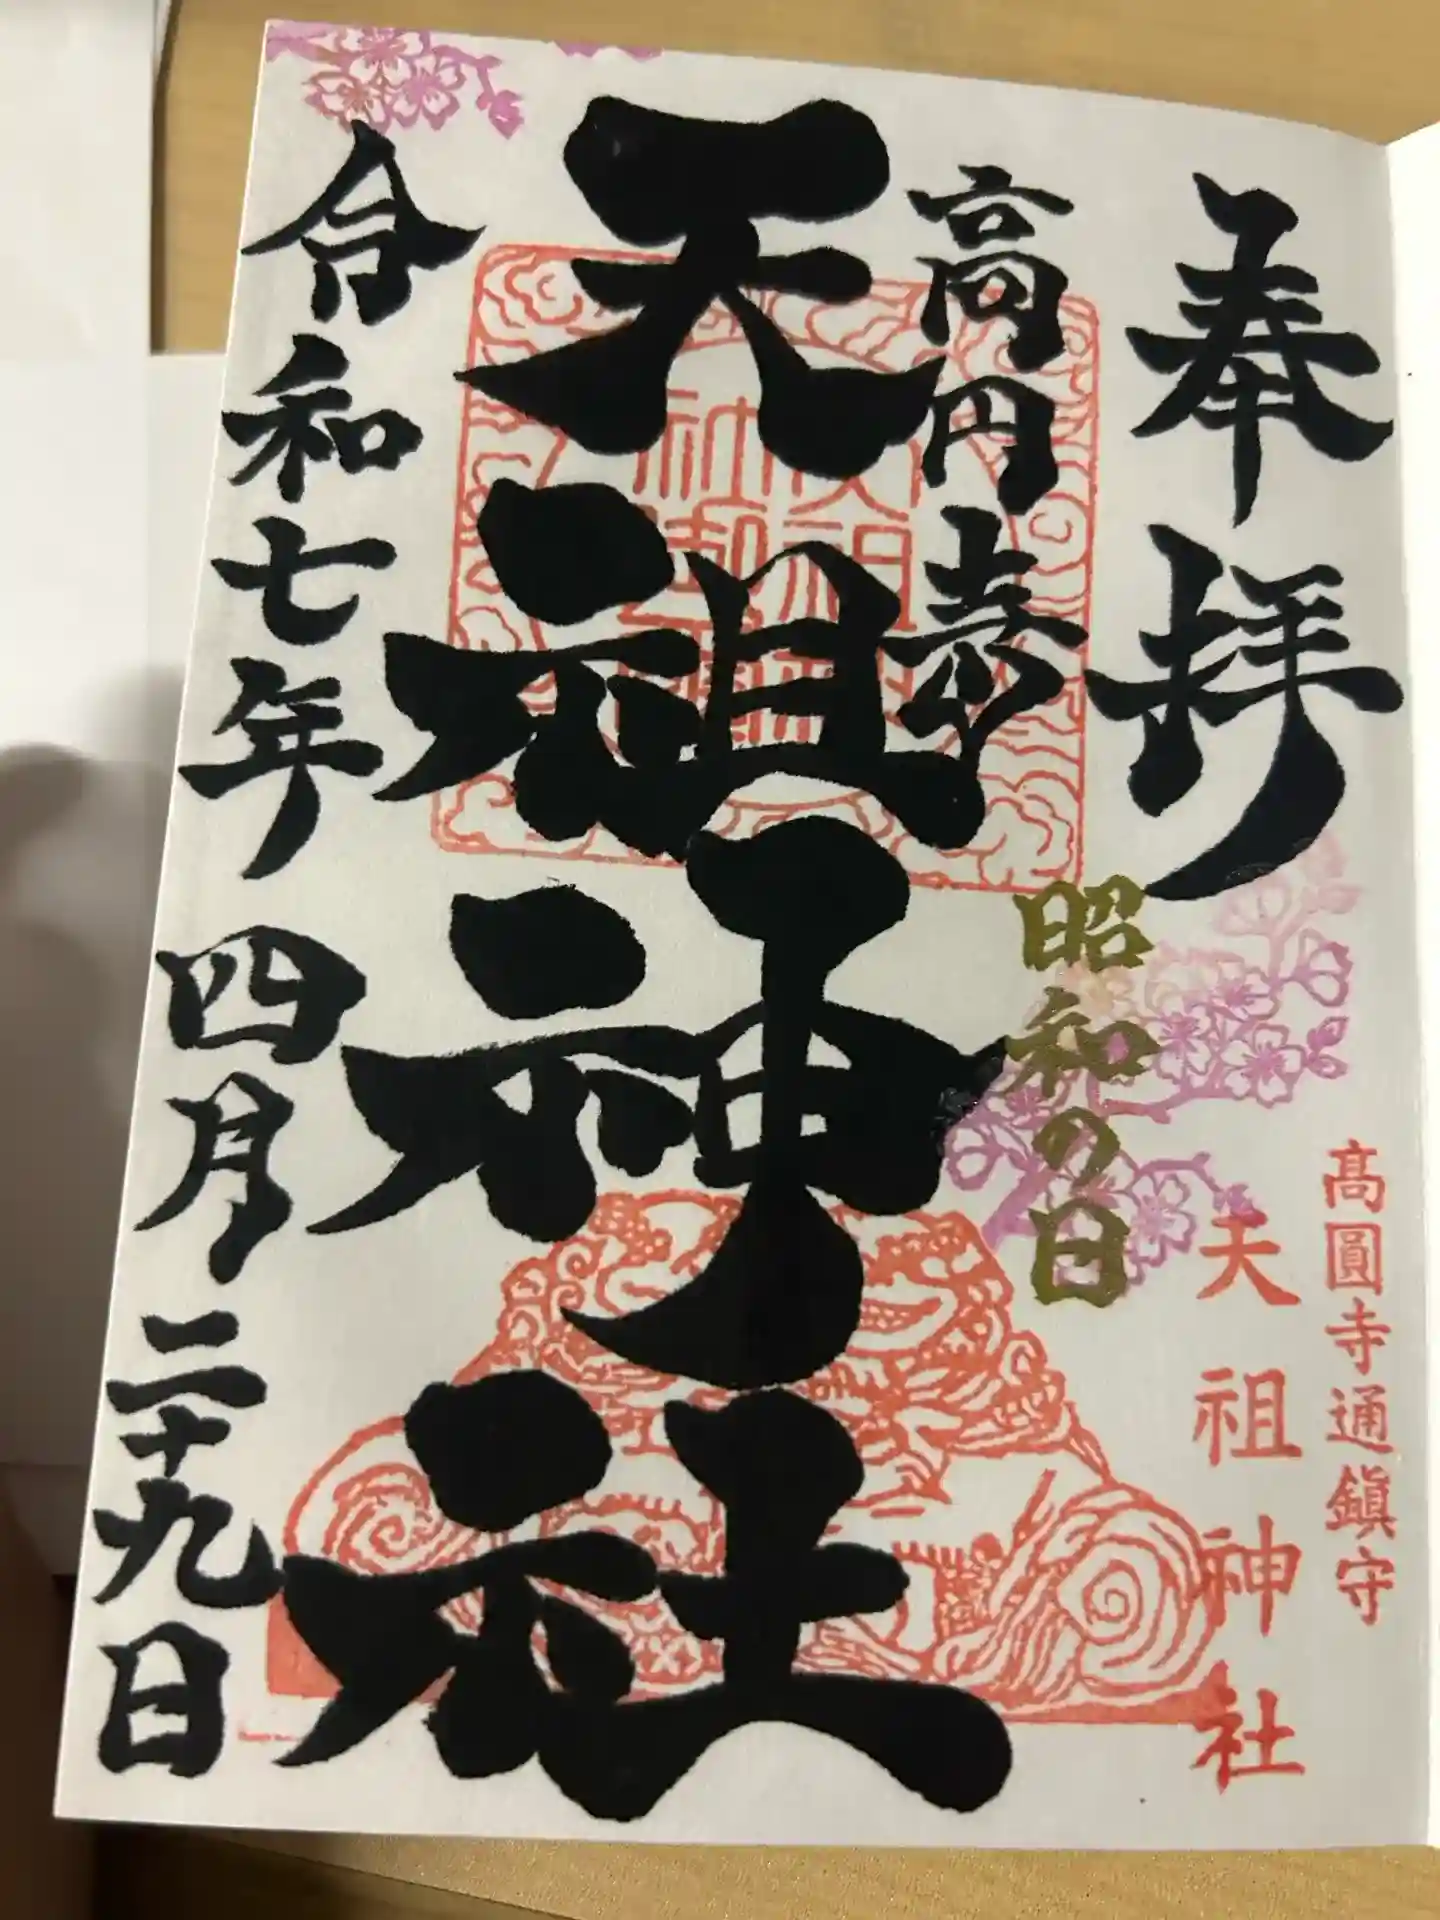 奉拝
高円寺
昭和の日
高圓寺通鎮守
天祖神社
天祖神社
令和七年四月二十九日